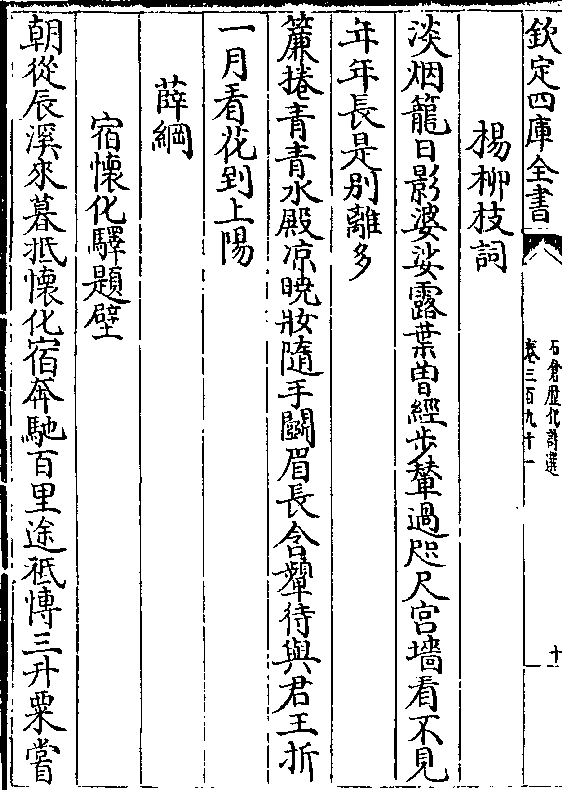 欽定四庫全書
石倉歴代詩選
卷三百九十一
十
楊柳枝詞
淡烟籠日影婆娑露葉曽經步輦過咫尺宮墻看不見
年年長是別離多
簾捲青青水殿凉曉妝隨手鬭眉長含顰待與君王折
一月看花到上陽
薛綱
宿懷化驛題壁
朝從辰溪來暮抵懷化宿奔馳百里途祗慱三升粟嘗